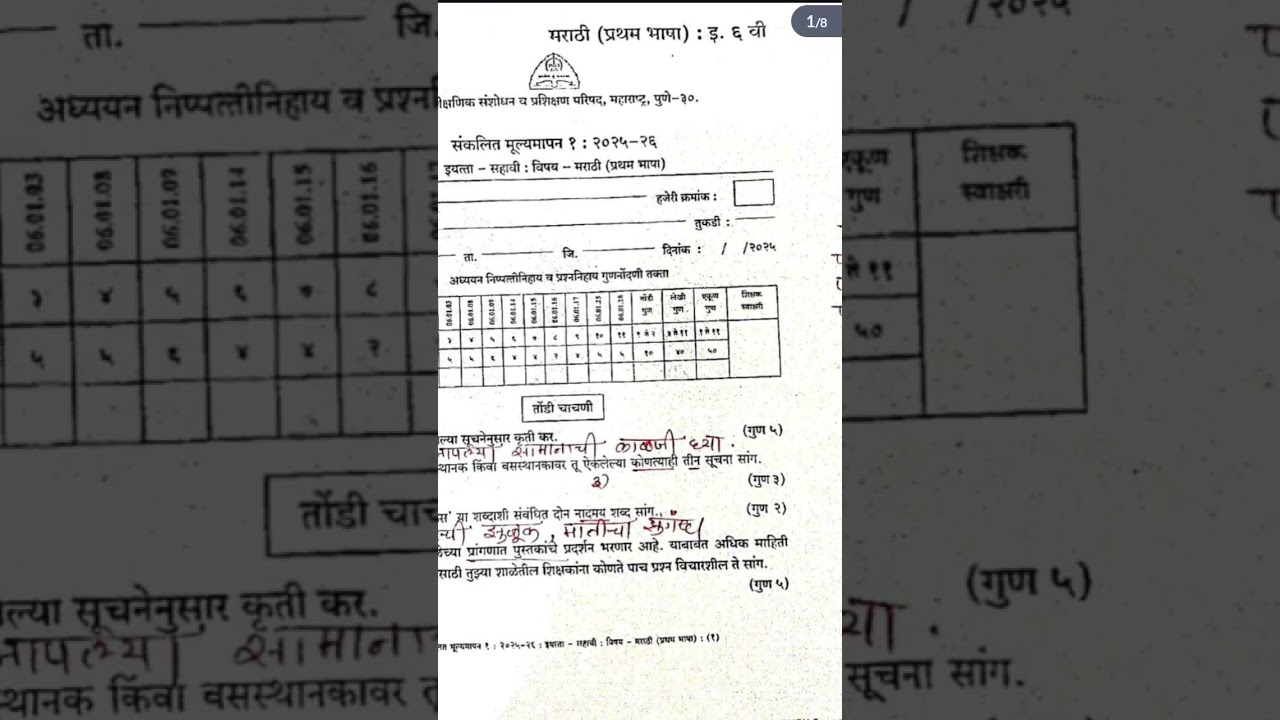 1/8
मराठी (प्रथम भाषा) : इ. ६ वी
क्षणिक संशोधन व प्रशिक्षण परिषद, महाराष्ट्र, पुणे-३०.
संकलित मूल्यमापन १ : २०२५-२६
इयत्ता - सहावी : विषय - मराठी (प्रथम भाषा)
हजेरी क्रमांक :
तुकडी :
ता. जि. दिनांक : / /२०२५
अध्ययन निष्पत्तीनिहाय व प्रश्ननिहाय गुणनोंदणी तक्ता
06.01.03 06.01.08 06.01.09 06.01.14 06.01.15 06.01.16 06.01.17 06.01.25 06.01.28 तोंडी गुण लेखी गुण एकूण गुण शिक्षक स्वाक्षरी
३ ४ ५ ६ ७ ८ ९ १० ११ १ ते २ ३ ते ११ १ ते ११
५ ५ ६ ४ ४ २ ४ ५ ५ १० ४० ५०
तोंडी चाचणी
ल्या सूचनेनुसार कृती कर. (गुण ५)
आपल्या सामानाची काळजी घ्या.
थानक किंवा बसस्थानकावर तू ऐकलेल्या कोणत्याही तीन सूचना सांग.
३) (गुण ३)
स' या शब्दाशी संबंधित दोन नादमय शब्द सांग. (गुण २)
ची झुळूक, मातीचा सुगंध
च्या प्रांगणात पुस्तकांचे प्रदर्शन भरणार आहे. याबाबत अधिक माहिती
साठी तुझ्या शाळेतील शिक्षकांना कोणते पाच प्रश्न विचारशील ते सांग.
(गुण ५)
त मूल्यमापन १ : २०२५-२६ : इयत्ता - सहावी : विषय - मराठी (प्रथम भाषा) : (१)